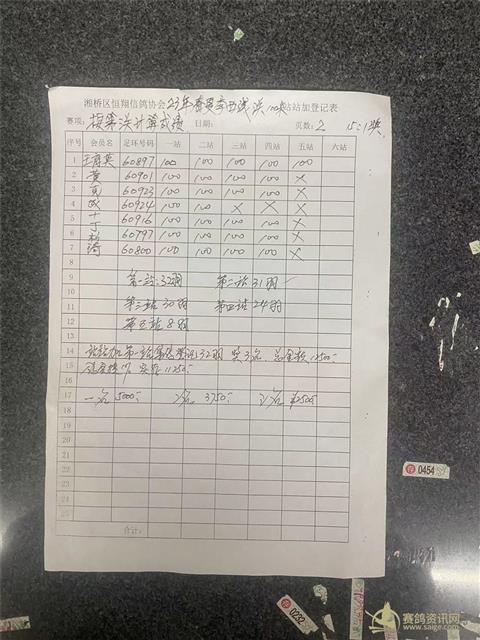 湘桥区恒翔信鸽协会23年 站站加登记表
赛项: 日期: 页数:2 15:1奖
序号 会员名 足环号码 一站 二站 三站 四站 五站 六站
1 60897 100 100 100 100 100
2 黄 60901 100 100 100 100 ×
3 60923 100 100 100 100 ×
4 成 60924 100 100 × × ×
5 十 60916 100 100 100 100 ×
6 丁 60797 100 100 100 100 ×
7 60800 100 100 100 100 ×
8
9 第一站:32羽 第二站31羽
10
11 第三站30羽 第四站24羽
12 第五站8羽
13
14 站站加第一站 32羽 奖3名 总金额12500
15 11250
16
17 一名5000 2名3750 3名2500
18
19
20
21
22
23
24
25
合计:
0454
0232
赛鸽资讯网
www.saige.com